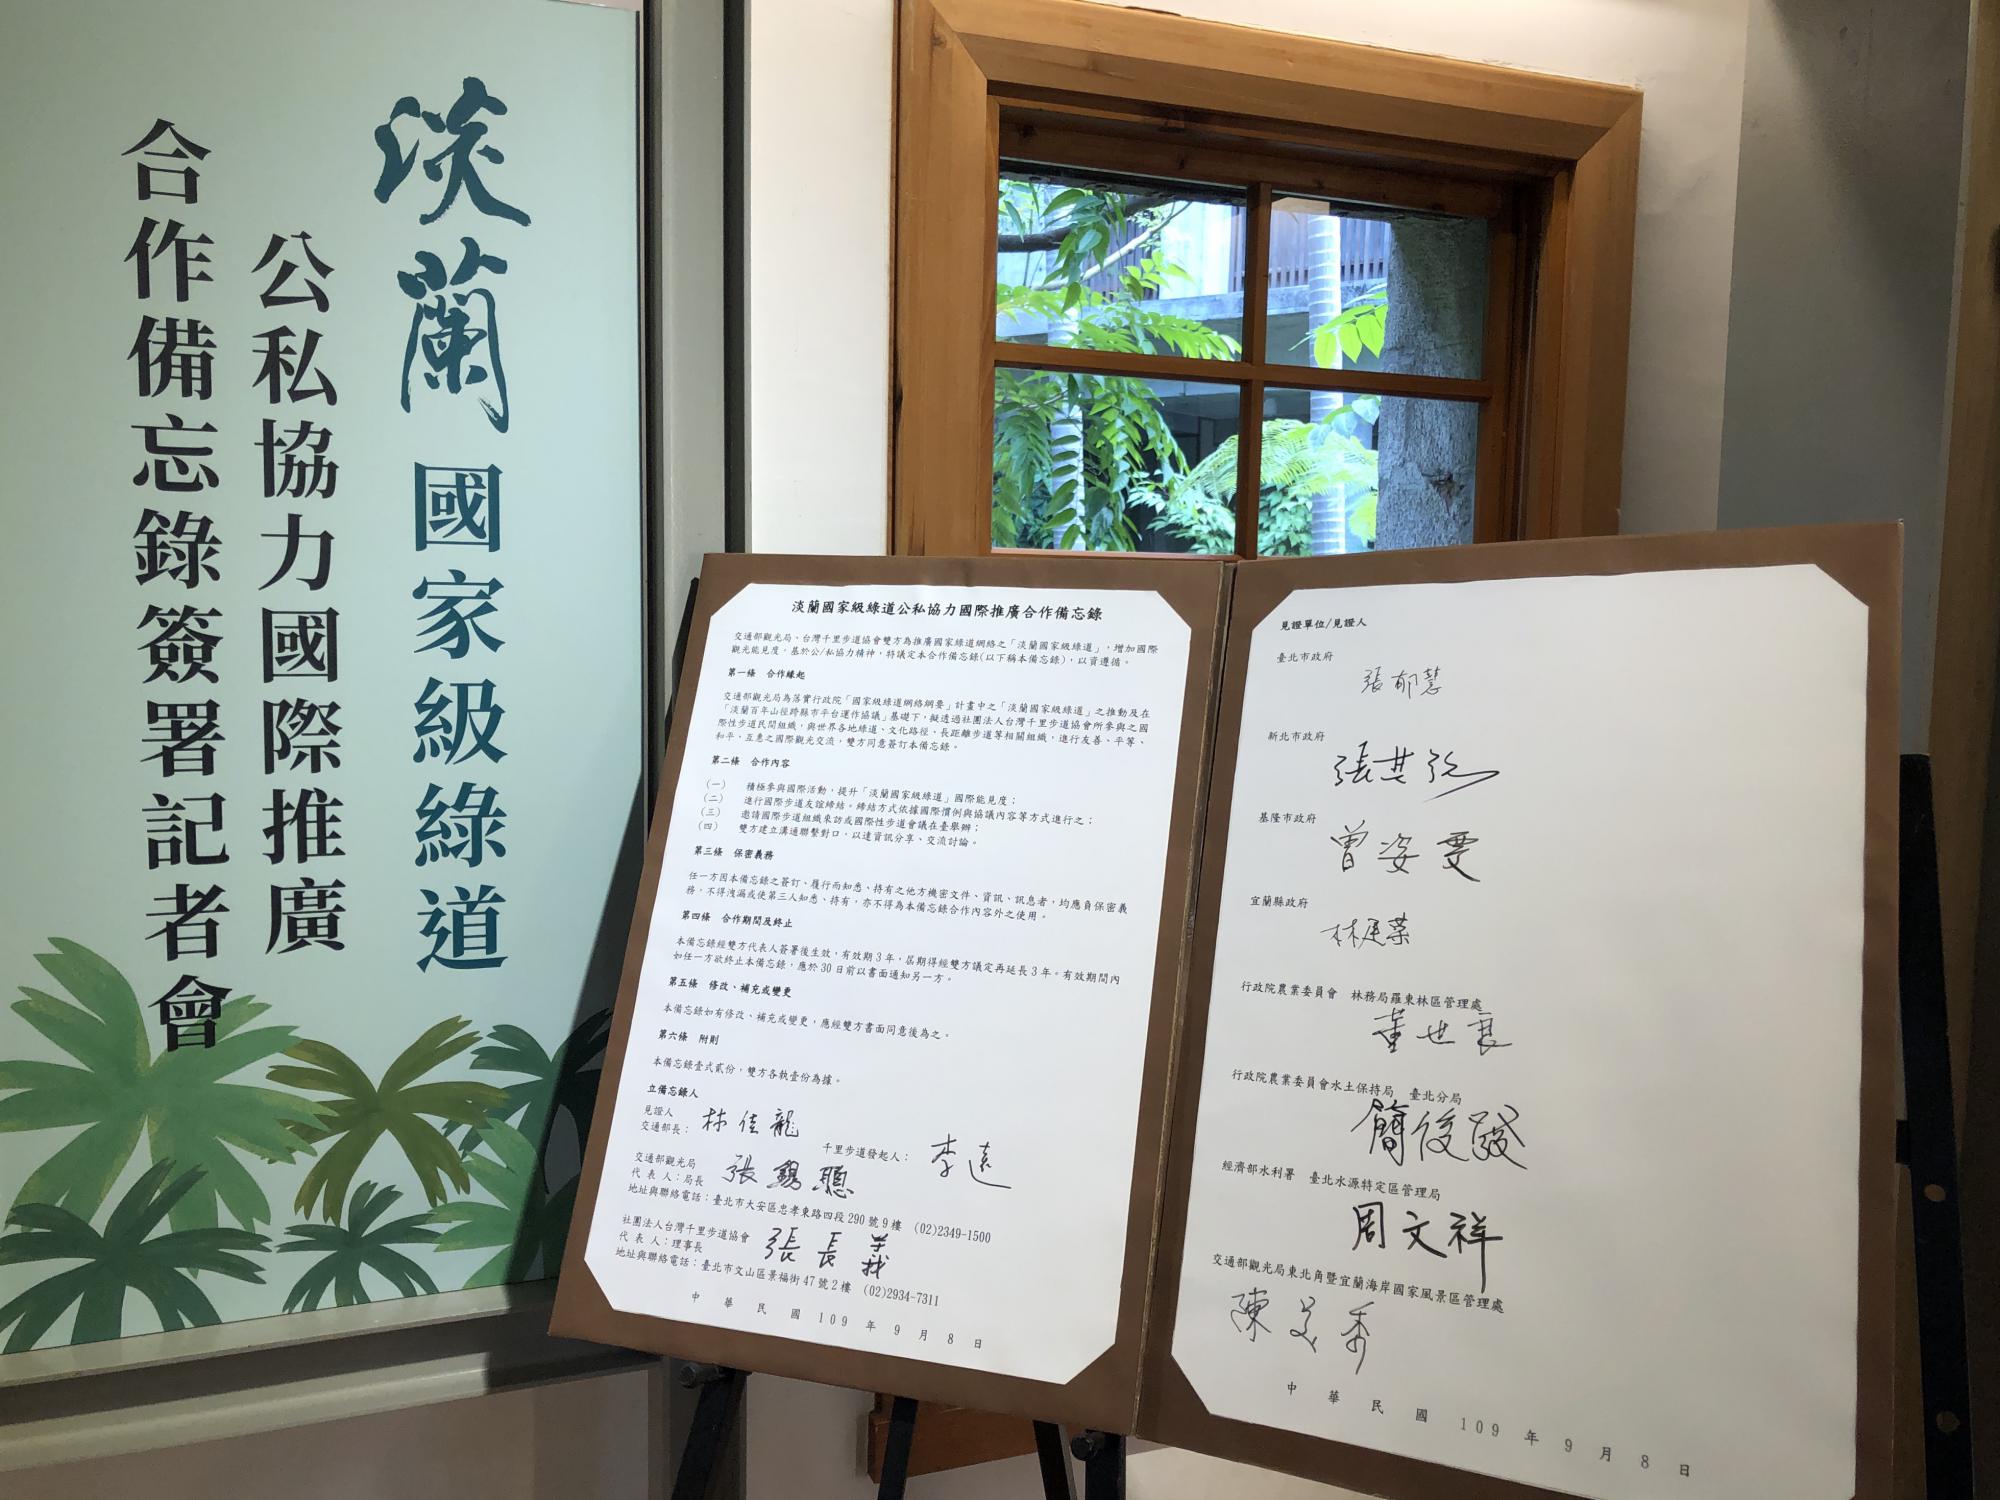 淡蘭國家級綠道
公私協力國際推廣
合作備忘錄簽署記者會
淡蘭國家級綠道公私協力國際推廣合作備忘錄
交通部觀光局、台灣千里步道協會雙方為推廣國家綠道網絡之「淡蘭國家級綠道」，增加國際
觀光能見度，基於公/私協力精神，特議定本合作備忘錄(以下稱本備忘錄)，以資遵循。
第一條 合作緣起
交通部觀光局為落實行政院「國家級綠道網絡綱要」計畫中之「淡蘭國家級綠道」之推動及在
「淡蘭百年山徑跨縣市平台運作協議」基礎下，擬透過社團法人台灣千里步道協會所參與之國
際性步道民間組織，與世界各地綠道、文化路徑、長距離步道等相關組織，進行友善、平等、
和平、互惠之國際觀光交流，雙方同意簽訂本備忘錄。
第二條 合作內容
(一) 積極參與國際活動，提升「淡蘭國家級綠道」國際能見度；
(二) 進行國際步道友誼締結。締結方式依據國際慣例與協議內容等方式進行之；
(三) 邀請國際步道組織來訪或國際性步道會議在臺舉辦；
(四) 雙方建立溝通聯繫對口，以達資訊分享、交流討論。
第三條 保密義務
任一方因本備忘錄之簽訂、履行而知悉、持有之他方機密文件、資訊、訊息者，均應負保密義
務，不得洩漏或使第三人知悉、持有，亦不得為本備忘錄合作內容外之使用。
第四條 合作期間及終止
本備忘錄經雙方代表人簽署後生效，有效期3年，屆期得經雙方議定再延長3年。有效期間內
如任一方欲終止本備忘錄，應於30日前以書面通知另一方。
第五條 修改、補充或變更
本備忘錄如有修改、補充或變更，應經雙方書面同意後為之。
第六條 附則
本備忘錄壹式貳份，雙方各執壹份為據。
立備忘錄人
見證人
交通部長： 林佳龍
千里步道發起人： 李遠
交通部觀光局
代 表 人：局長 張錫聰
地址與聯絡電話：臺北市大安區忠孝東路四段290號9樓 (02)2349-1500
社團法人台灣千里步道協會
代 表 人：理事長 張長義
地址與聯絡電話：臺北市文山區景福街47號2樓 (02)2934-7311
中 華 民 國 109 年 9 月 8 日
見證單位/見證人
臺北市政府
張郁慧
新北市政府
張其強
基隆市政府
曾姿雯
宜蘭縣政府
林建榮
行政院農業委員會 林務局羅東林區管理處
董世良
行政院農業委員會水土保持局 臺北分局
簡俊發
經濟部水利署 臺北水源特定區管理局
周文祥
交通部觀光局東北角暨宜蘭海岸國家風景區管理處
陳美秀
中 華 民 國 109 年 9 月 8 日